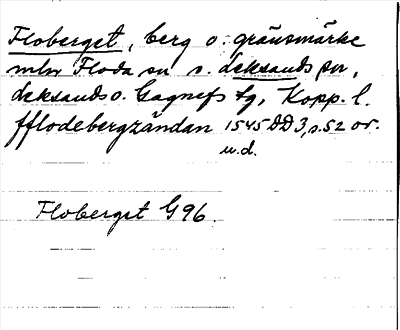 Floberget, berg o. gränsmärke
mln Floda sn o. Leksands sn,
Leksands o. Gagnefs tg, Kopp. l.
fflodebergzändan 1545 DD 3, s. 52 or.
u.d.
Floberget G96.